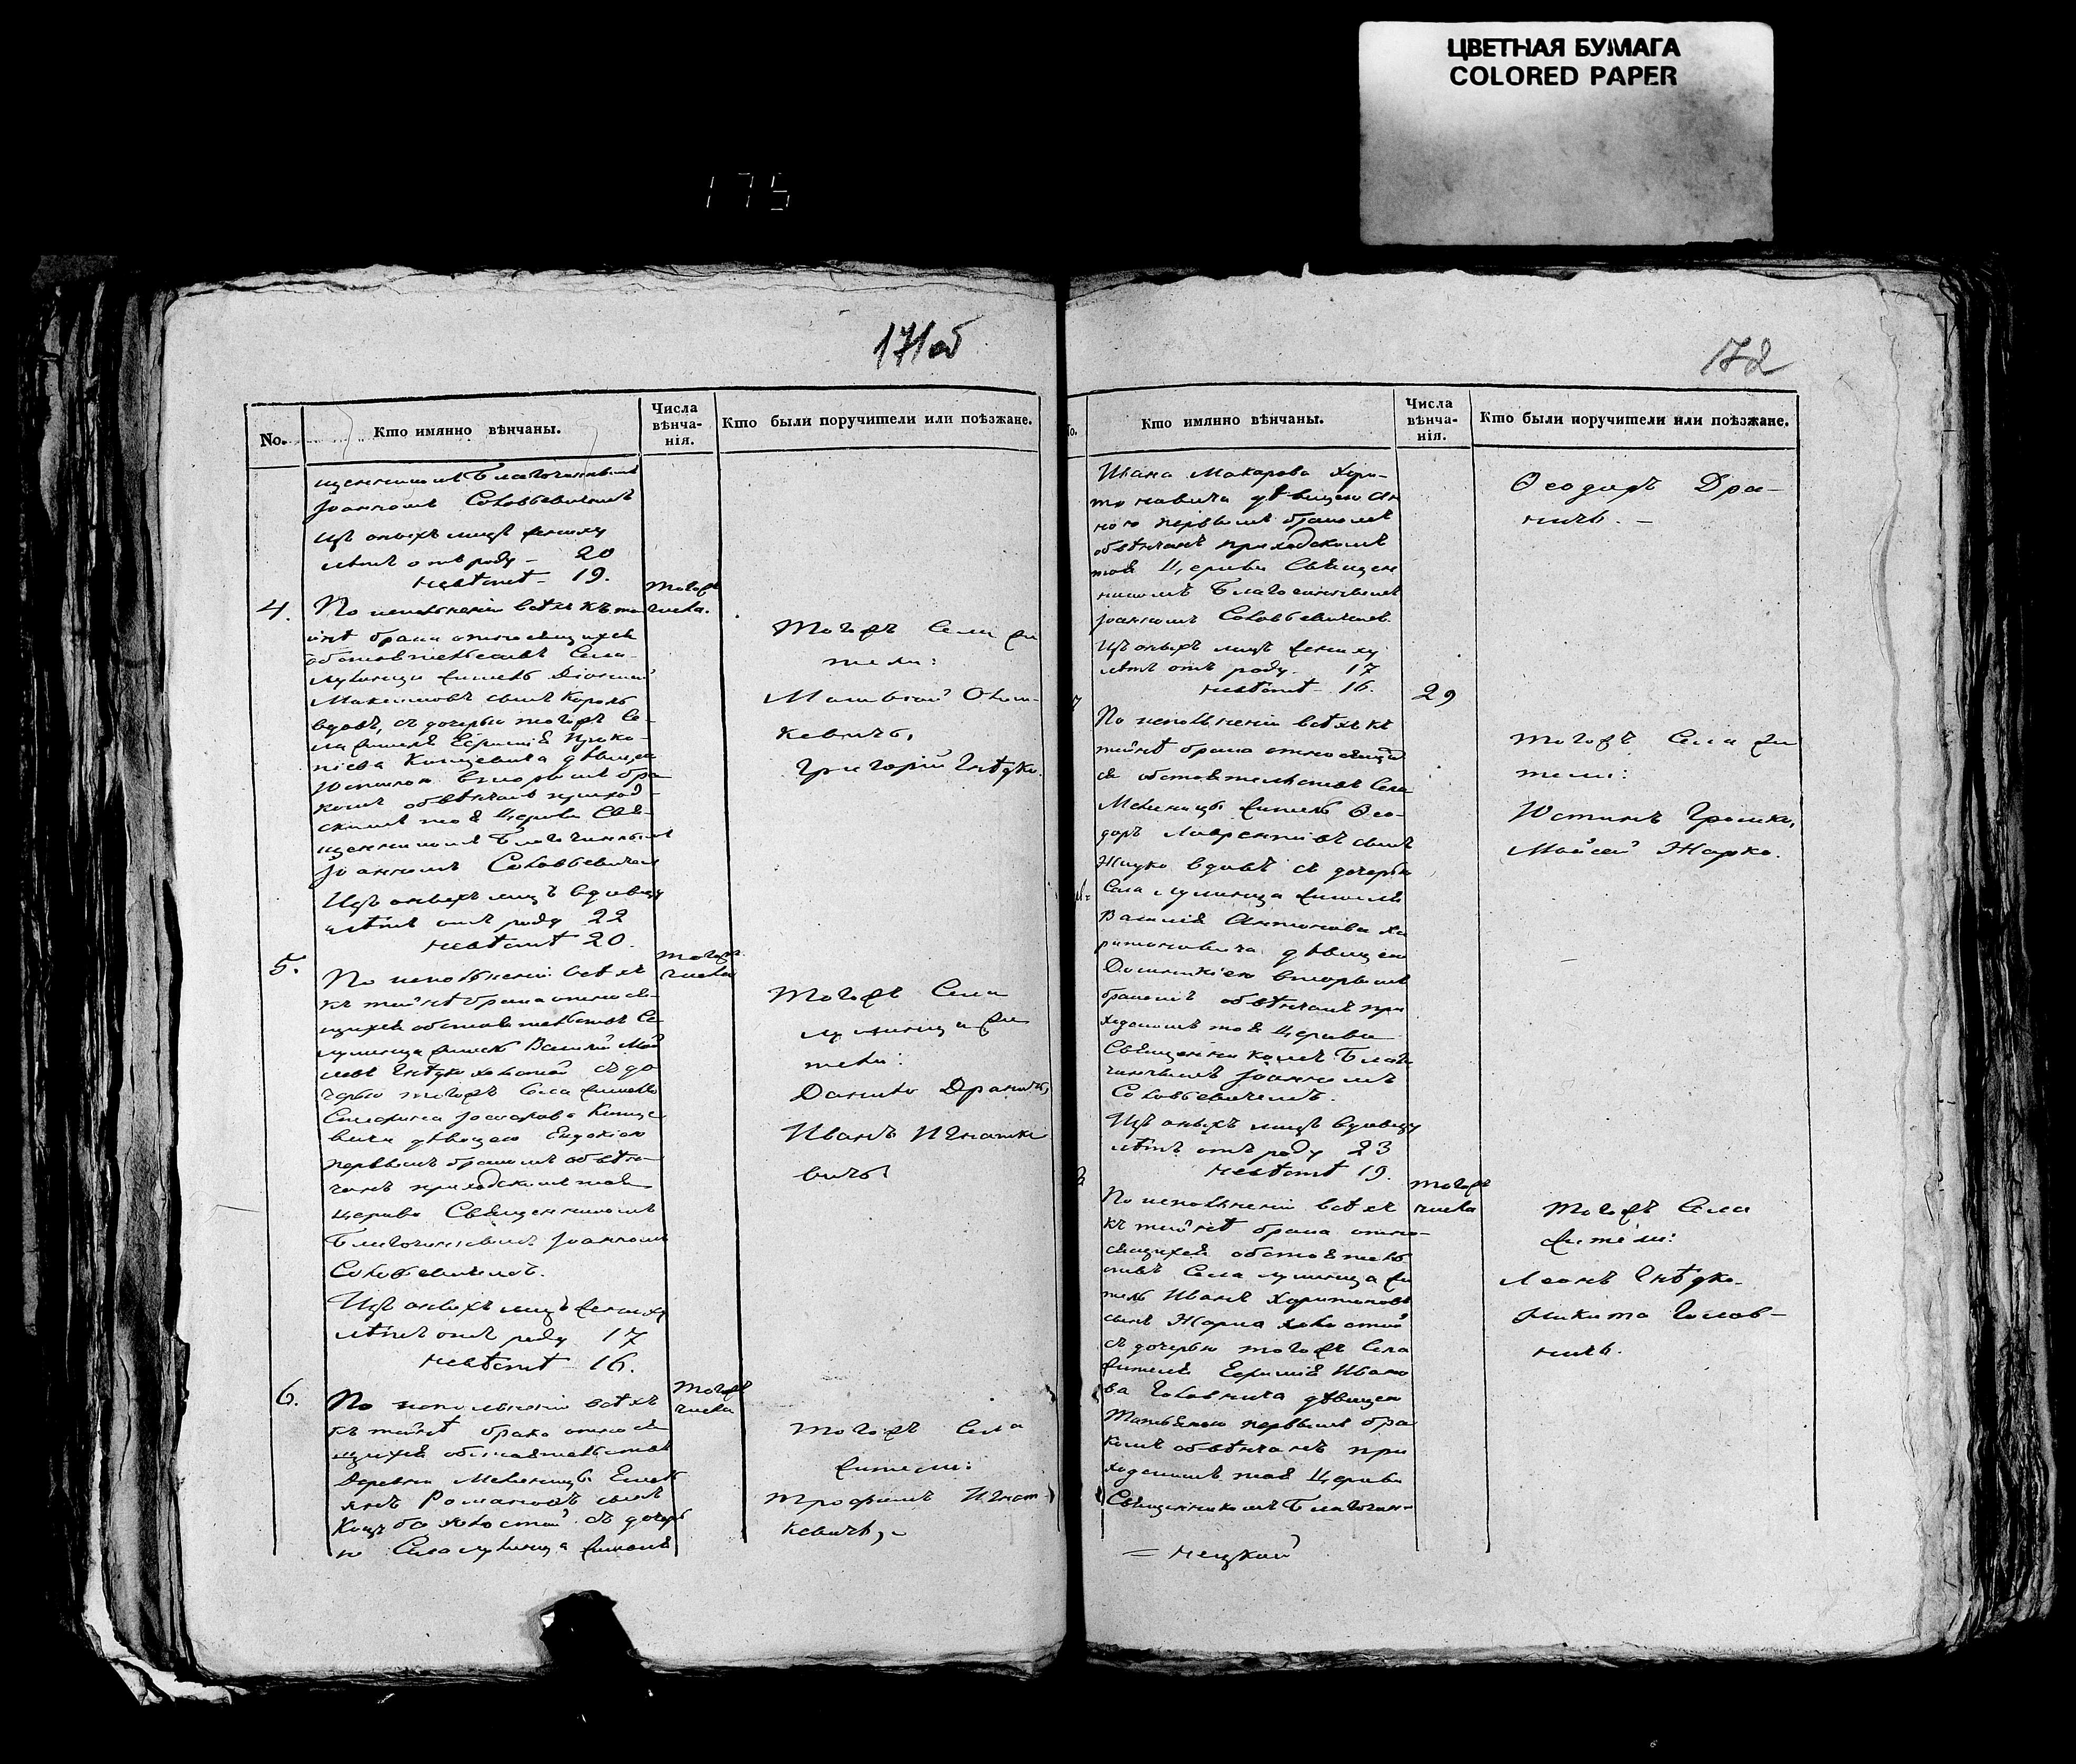 ЦВЕТНАЯ БУМАГА
COLORED PAPER
175
171об
No.
Кто имянно вѣнчаны.
Числа
вѣнча-
нія.
Кто были поручители или поѣзжане.
щенникомъ Благочиннымъ
Іоанномъ Соловьевичемъ
Изъ оныхъ лицъ жениху
лѣтъ отъ роду – 20
невѣстѣ – 19.
4.
По исполненіи всѣхъ къ та
инѣ брака относящихся
обстоятельствъ Села
Лунинца житель Діонисій
Максимовъ сынъ Король
вдовъ, съ дочерью тогожъ Се-
ла жителя Ефимія Проко-
піева Концевича дѣвицею
вторымъ бра
комъ обвѣнчанъ приход-
скимъ тоя Церкви Свя-
щенникомъ Благочиннымъ
Іоанномъ Соловьевичемъ
Изъ оныхъ лицъ вдовцу
лѣтъ отъ роду 22
невѣстѣ 20.
тогожъ
числа.
Тогожъ Села жи
тели:
Матвѣй
кевичъ,
Григорій Гнѣдко.
5.
По исполненіи всѣхъ
къ тайнѣ брака относя-
щихся обстоятельствъ Се
Лунинца житель Василій
Гнѣдко холостой съ до
черью тогожъ Села жителя
вича дѣвицею Евдокіею
первымъ бракомъ обвѣн-
чанъ приходскимъ тоя
Церкви Священникомъ
Благочиннымъ Іоанномъ
Соловьевичемъ.
Изъ оныхъ лицъ жениху
лѣтъ отъ роду 17
невѣстѣ 16.
тогожъ
числа
Тогожъ Села
Лунинца жи
тели:
Данило Драничъ,
Иванъ Игнатке
вичъ
6.
По исполненіи всѣхъ
къ тайнѣ брака относя
щихся обстоятельствъ
Деревни Мелесницы Емель
янъ Романовъ сынъ
холостой съ дочерь
ю Села Лунинца жителя
тогожъ
числа
Тогожъ Села
жители:
Трофимъ Игнат-
кевичъ,
172
No.
Кто имянно вѣнчаны.
Числа
вѣнча-
нія.
Кто были поручители или поѣзжане.
Ивана Макарова Хари-
тоновича дѣвицею Ан
ною первымъ бракомъ
обвѣнчанъ приходскимъ
тоя Церкви Священ
никомъ Благочиннымъ
Іоанномъ Соловьевичемъ.
Изъ оныхъ лицъ жениху
лѣтъ отъ роду 17
невѣстѣ 16.
Ѳеодоръ Дра-
ничъ.
7
По исполненіи всѣхъ къ
тайнѣ брака относящих
ся обстоятельствъ Села
житель Ѳео-
доръ Лаврентіевъ сынъ
вдовъ съ дочерью
Села Лунинца жителя
Василія Антонова Ха
ритоновича дѣвицею
Домникіею вторымъ
бракомъ обвѣнчанъ при
ходскимъ тоя Церкви
Священникомъ Благо
чиннымъ Іоанномъ
Соловьевичемъ.
Изъ оныхъ лицъ вдовцу
лѣтъ отъ роду 23
невѣстѣ 19.
29
Тогожъ Села жи
тели:
Юстинъ Громка,
Мойсей Жарко.
По исполненіи всѣхъ
къ тайнѣ брака отно-
сящихся обстоятель
ствъ Села Лунинца жи
тель Иванъ Харитоновъ
сынъ Жарка холостой
съ дочерью тогожъ Села
жителя Ефимія Ивано
ва Головнича дѣвицею
Татьяною первымъ бра
комъ обвѣнчанъ при
ходскимъ тоя Церкви
Священникомъ Благочин-
тогожъ
числа
Тогожъ Села
жители:
Леонъ Гнѣдко
Никита Голов-
ничъ.